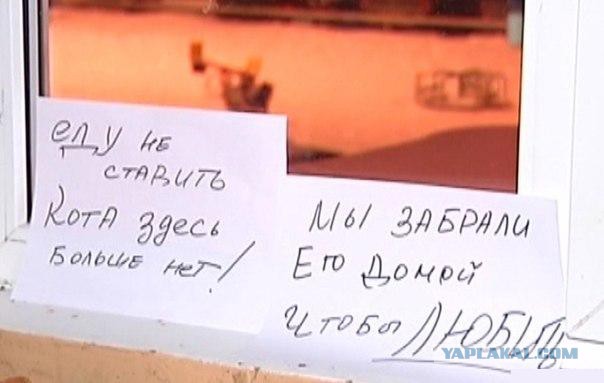 еду не
ставить
Кота здесь
больше нет!
Мы забрали
Его домой
Чтобы ЛЮБИТЬ
YAPLAKAL.COM